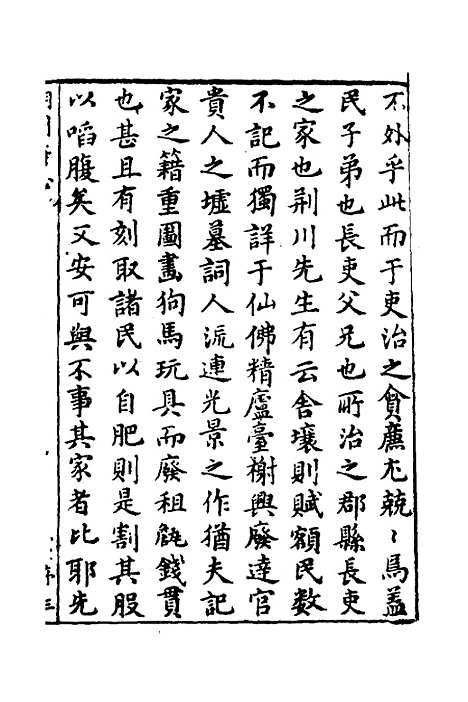 不外乎此而于吏治之貪廉尤兢〻焉蓋
民子弟也長吏父兄也所治之郡縣長吏
之家也荆川先生有云舍壤則賦額民數
不記而獨詳于仙佛精廬臺榭興廢達官
貴人之墟墓詞人流連光景之作猶夫記
家之籍重圖畫狗馬玩具而廢租甔錢貫
也甚且有刻取諸民以自肥則是割其股
以啗腹矣又安可與不事其家者比耶先